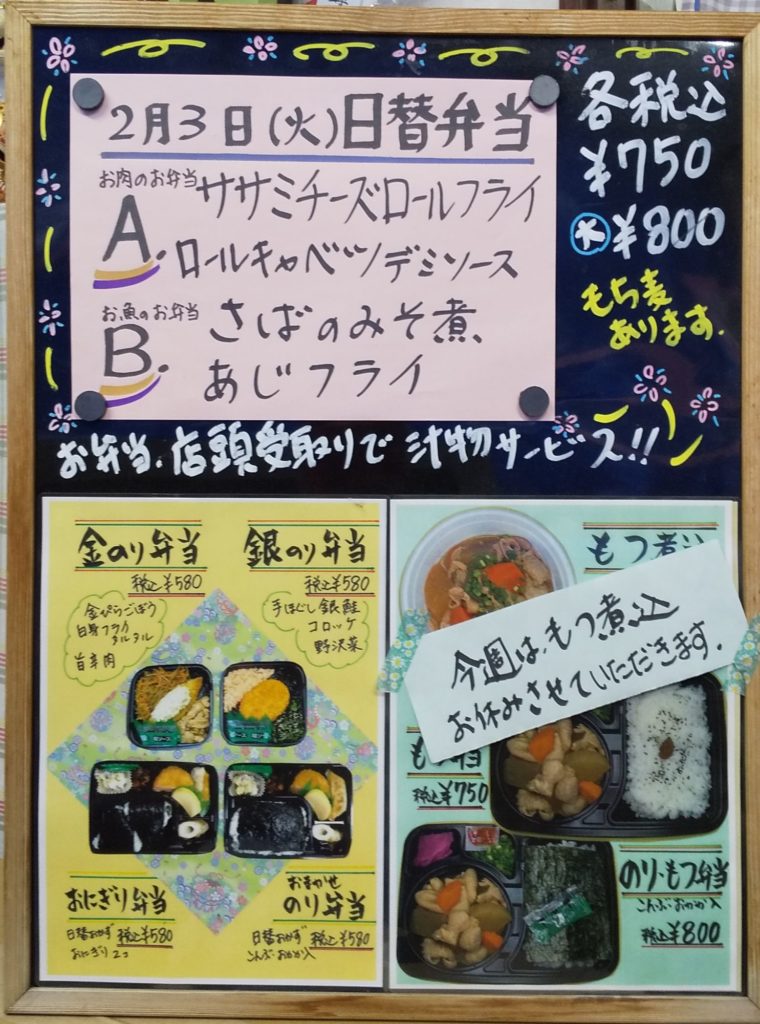 2月3日(火)日替弁当
お肉のお弁当
A. ササミチーズロールフライ
ロールキャベツデミソース
お魚のお弁当
B. さばのみそ煮、
あじフライ
各税込
¥750
大 ¥800
もち麦
あります.
お弁当、店頭受取りで 汁物サービス!!
金のり弁当
税込¥580
金ぴらごぼう
白身フライ
タルタル
旨辛肉
銀のり弁当
税込¥580
手ほぐし銀鮭
コロッケ
野沢菜
おにぎり弁当
日替おかず 税込¥580
おにぎり2コ
おまかせ
のり弁当
日替おかず 税込¥580
こんぶ・おかか入
もつ煮込
今週は、もつ煮込
お休みさせていただきます.
税込¥750
のり・もつ弁当
こんぶ・おかか入
税込¥800